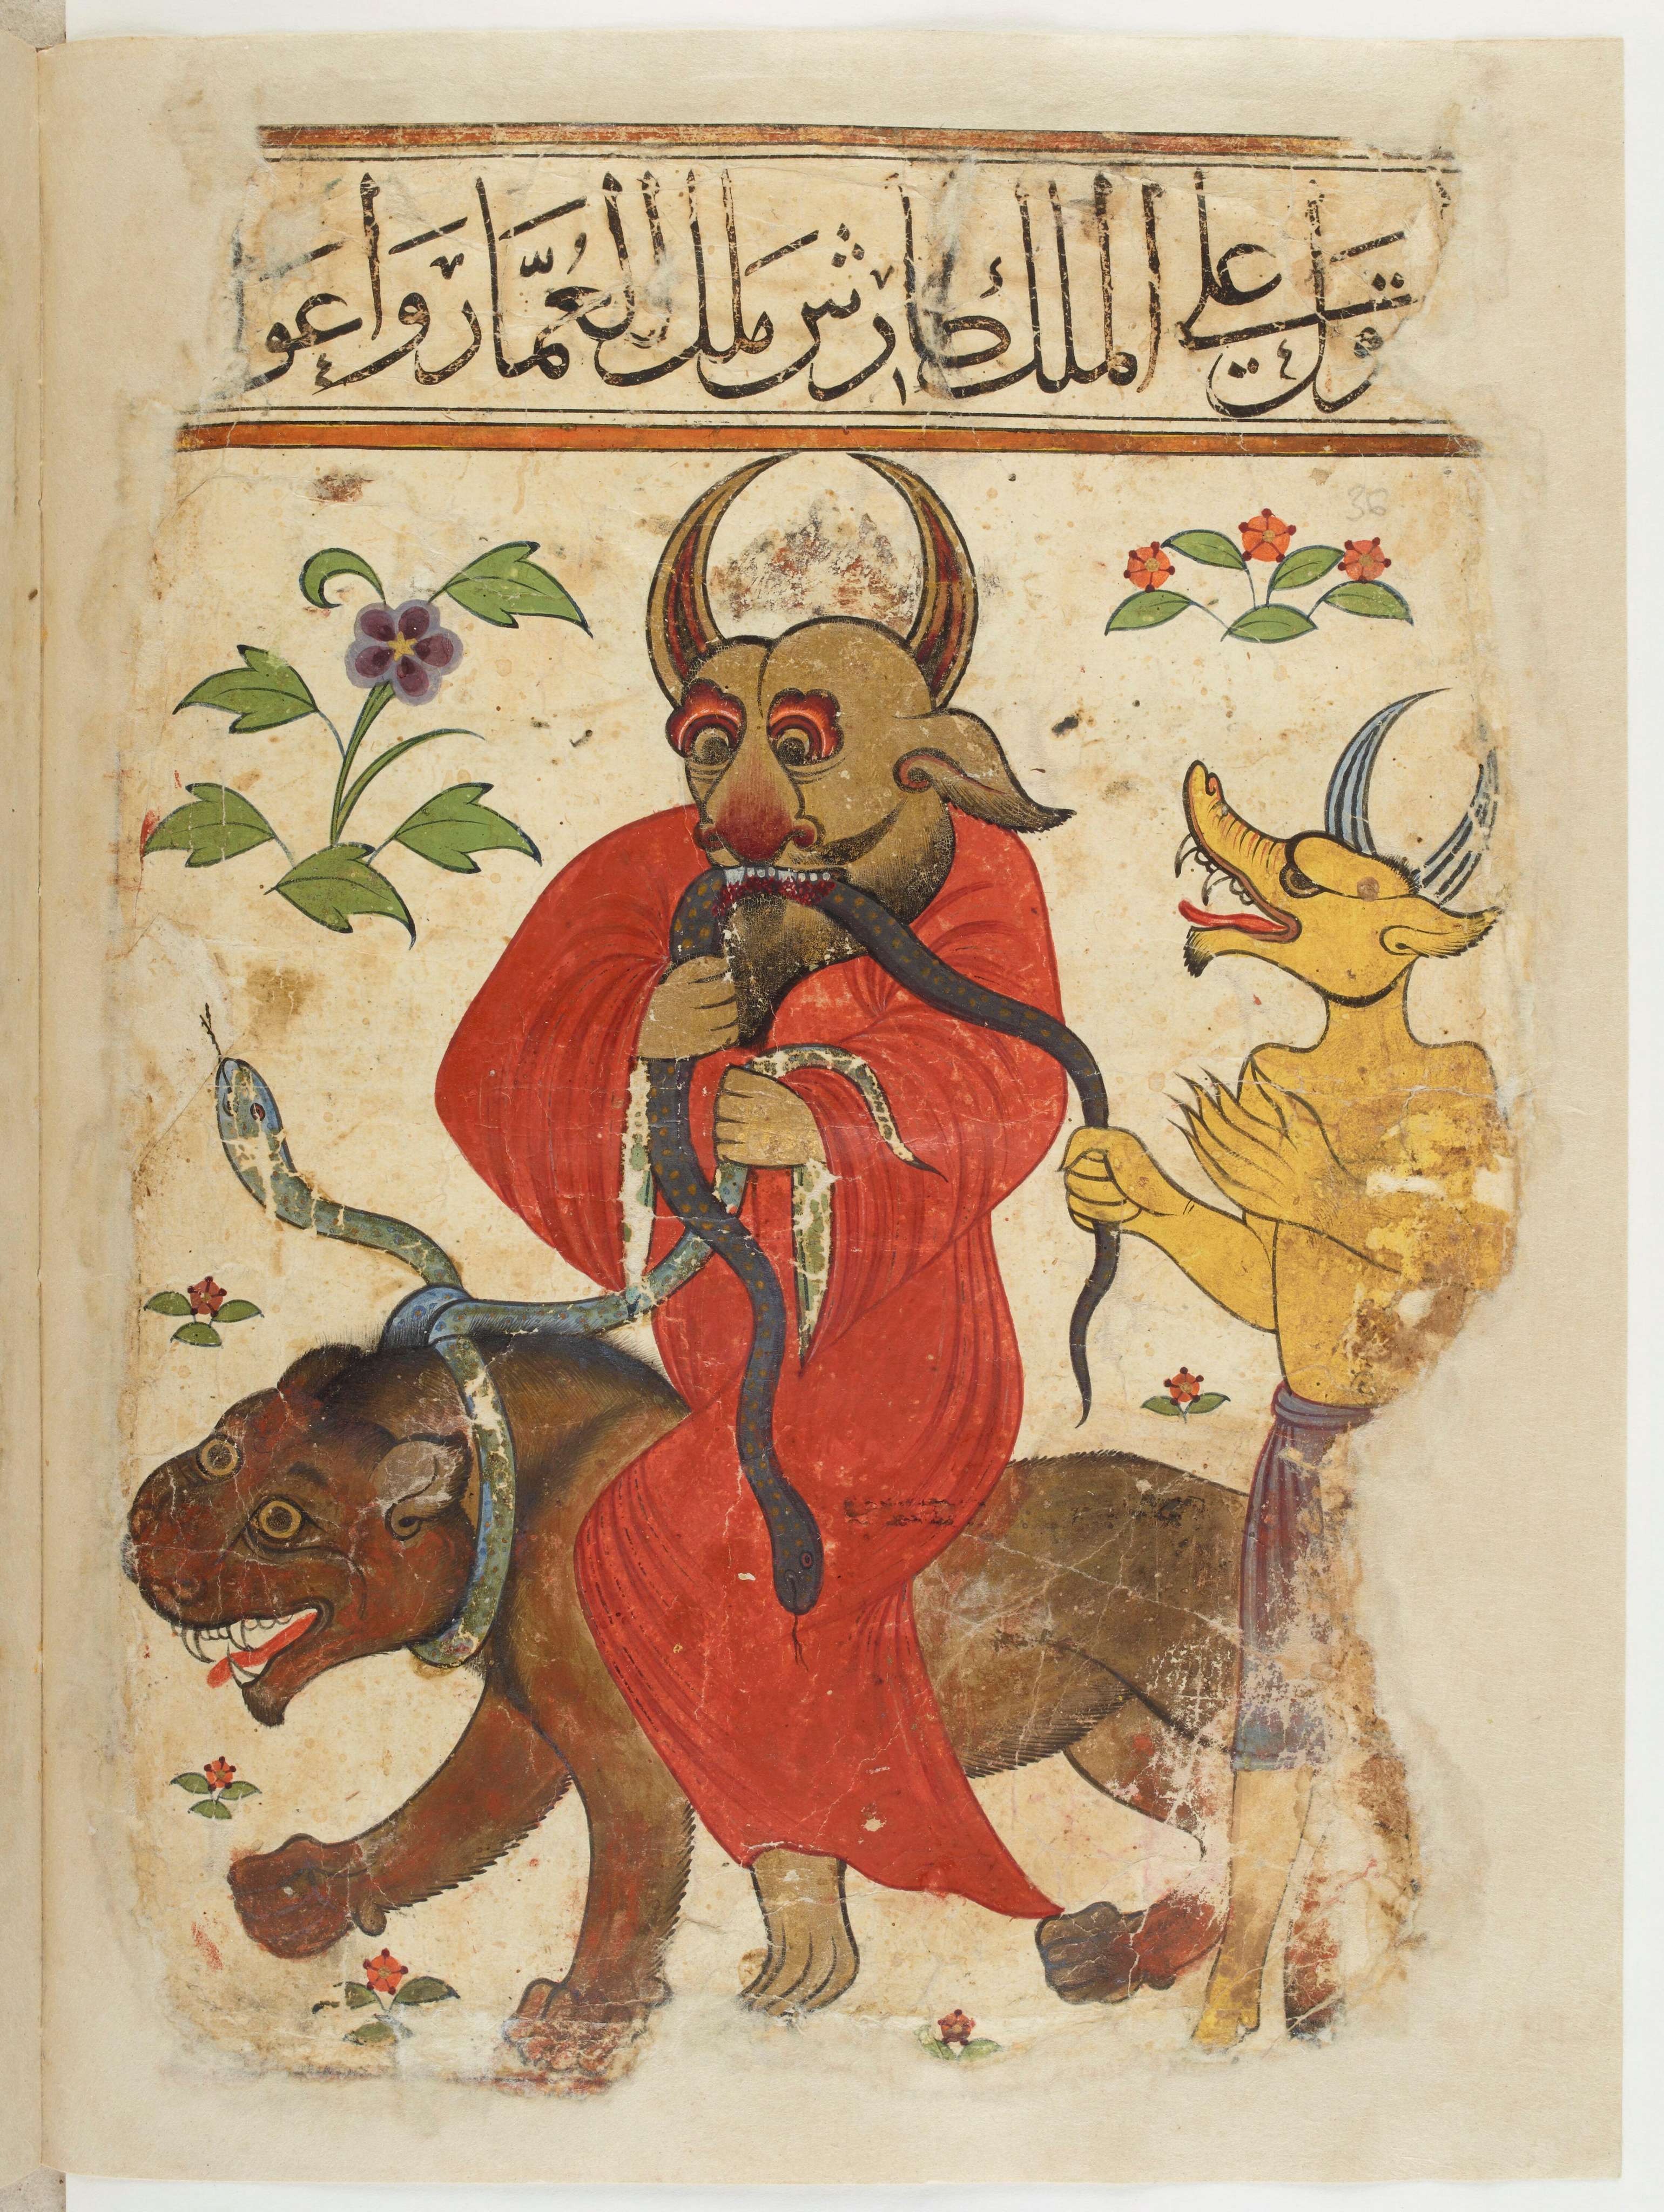 قول على الملك طارش ملك العُمّار وأعو
36